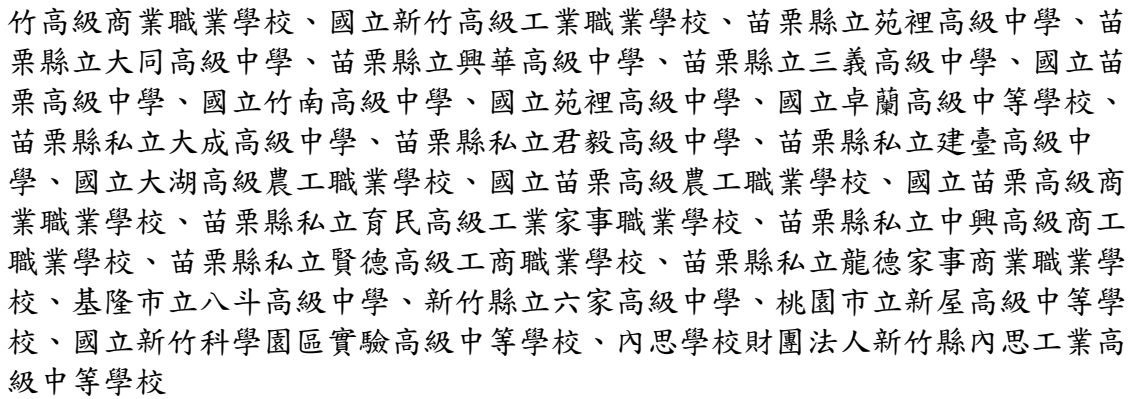 竹高級商業職業學校、國立新竹高級工業職業學校、苗栗縣立苑裡高級中學、苗
栗縣立大同高級中學、苗栗縣立興華高級中學、苗栗縣立三義高級中學、國立苗
栗高級中學、國立竹南高級中學、國立苑裡高級中學、國立卓蘭高級中等學校、
苗栗縣私立大成高級中學、苗栗縣私立君毅高級中學、苗栗縣私立建臺高級中
學、國立大湖高級農工職業學校、國立苗栗高級農工職業學校、國立苗栗高級商
業職業學校、苗栗縣私立育民高級工業家事職業學校、苗栗縣私立中興高級商工
職業學校、苗栗縣私立賢德高級工商職業學校、苗栗縣私立龍德家事商業職業學
校、基隆市立八斗高級中學、新竹縣立六家高級中學、桃園市立新屋高級中等學
校、國立新竹科學園區實驗高級中等學校、內思學校財團法人新竹縣內思工業高
級中等學校